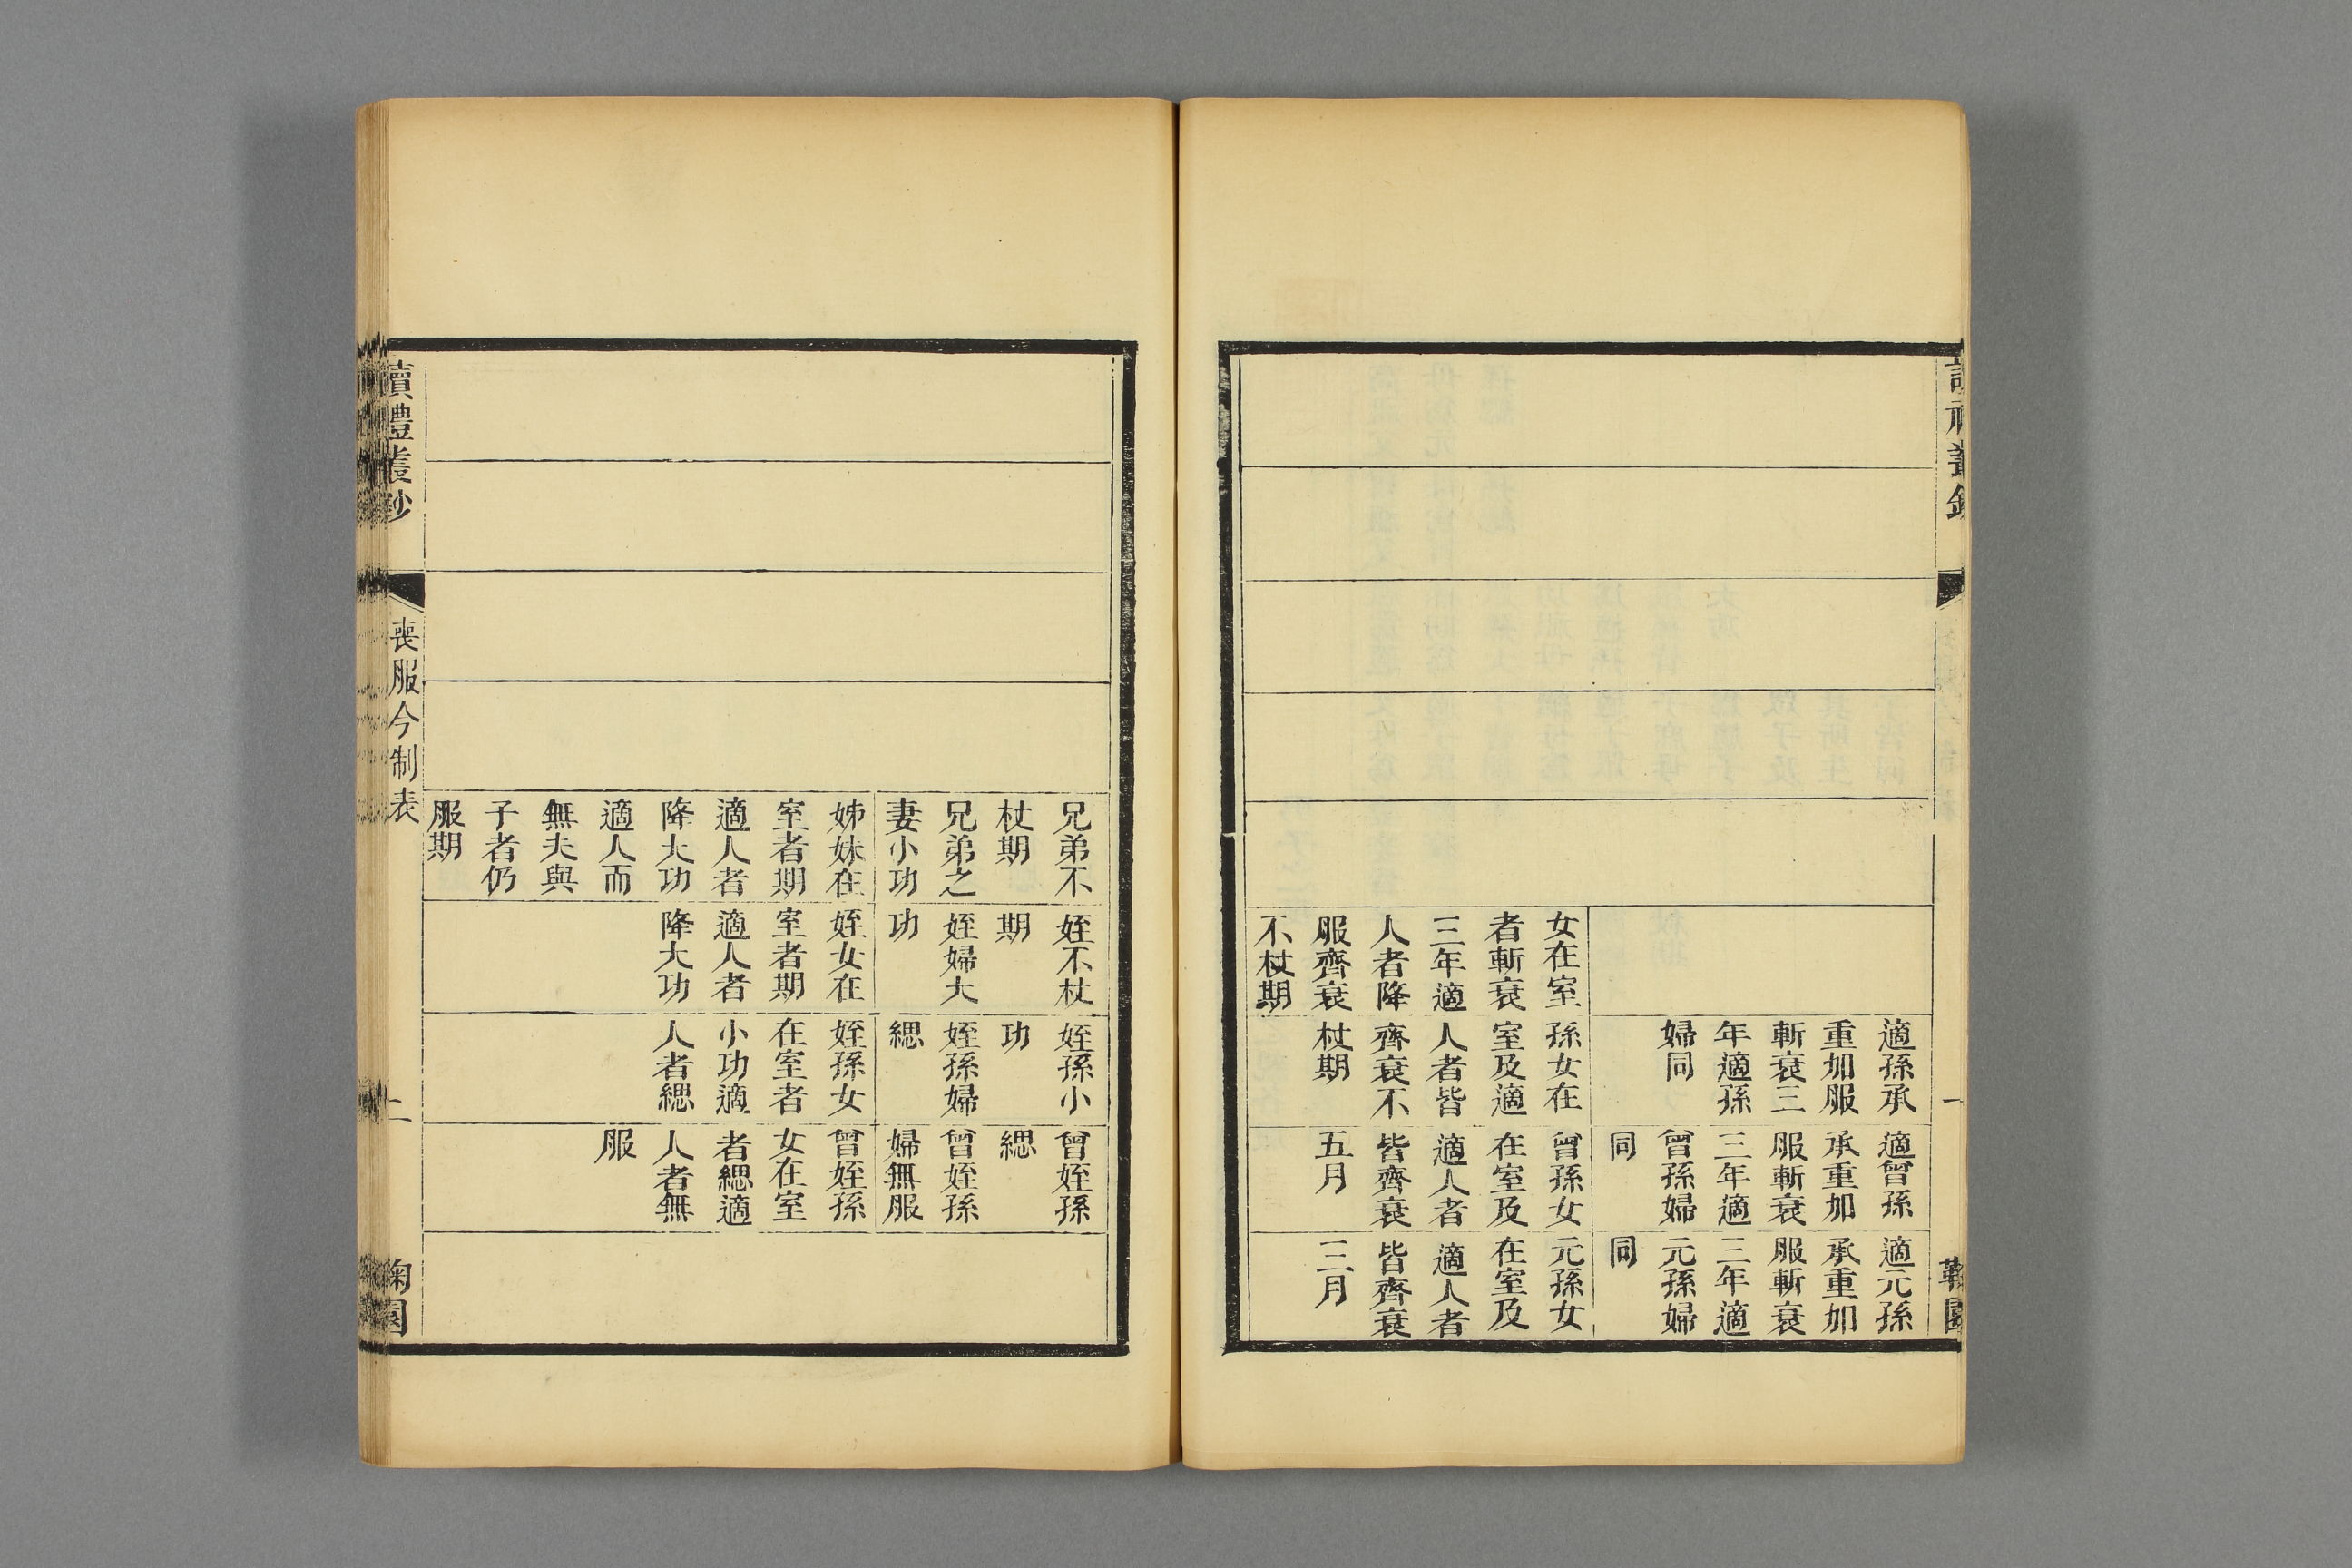 適孫承
重加服
斬衰三
年適孫
婦同
適曾孫
承重加
服斬衰
三年適
曾孫婦
同
適元孫
承重加
服斬衰
三年適
元孫婦
同
女在室
者斬衰
三年適
人者降
服齊衰
不杖期
孫女在
室及適
人者皆
齊衰不
杖期
曾孫女
在室及
適人者
皆齊衰
五月
元孫女
在室及
適人者
皆齊衰
三月
兄弟不
杖期
兄弟之
妻小功
姪不杖
期
姪婦大
功
姪孫小
功
姪孫婦
緦
曾姪孫
緦
曾姪孫
婦無服
姊妹在
室者期
適人者
降大功
適人而
無夫與
子者仍
服期
姪女在
室者期
適人者
降大功
姪孫女
在室者
小功適
人者緦
曾姪孫
女在室
者緦適
人者無
服
讀禮叢鈔
喪服今制表
二
鞠園